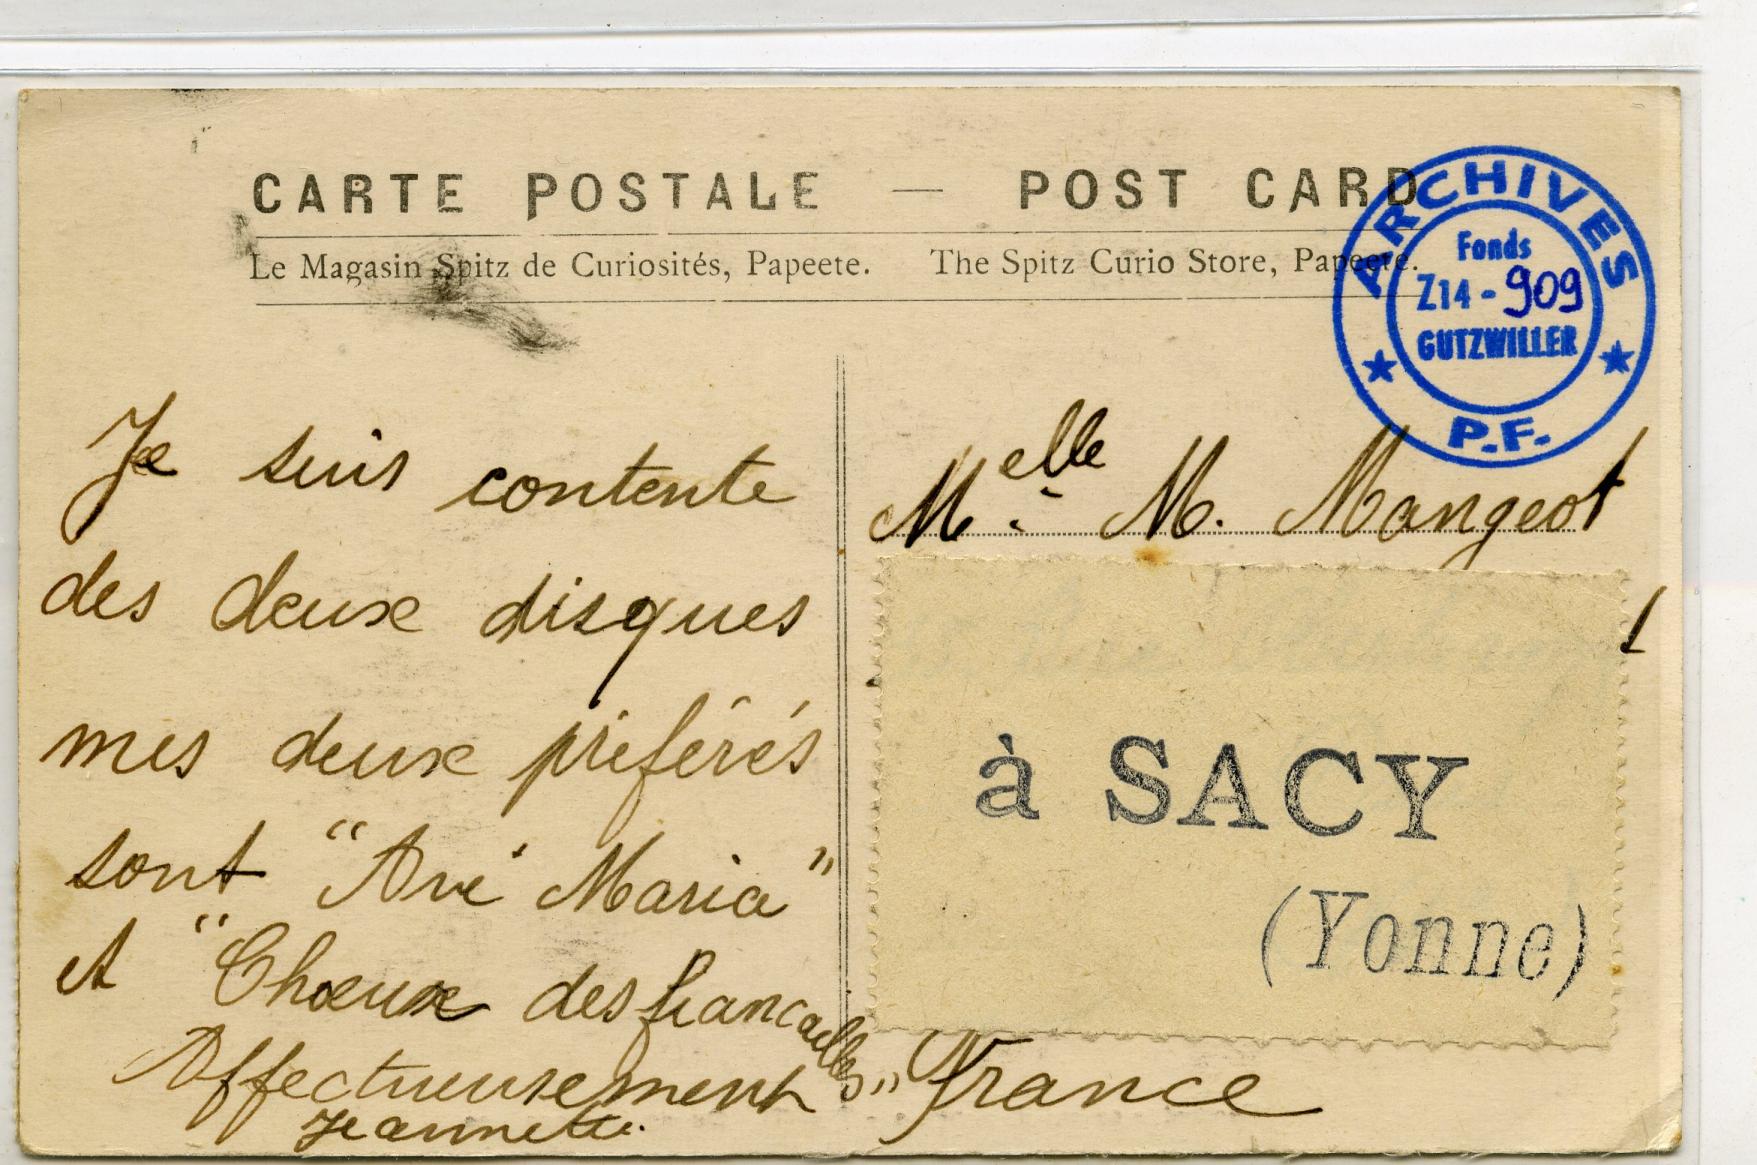 CARTE POSTALE — POST CARD
Le Magasin Spitz de Curiosités, Papeete. The Spitz Curio Store, Papeete.
ARCHIVES
Fonds
Z14-909
GUTZWILLER
P.F.
Je suis contente
des deux disques
mes deux préférés
sont "Avé Maria"
et "Choeux des fiancailles"
Affectueusement
Jeannette.
Melle M. Mangeot
à SACY
(Yonne)
France